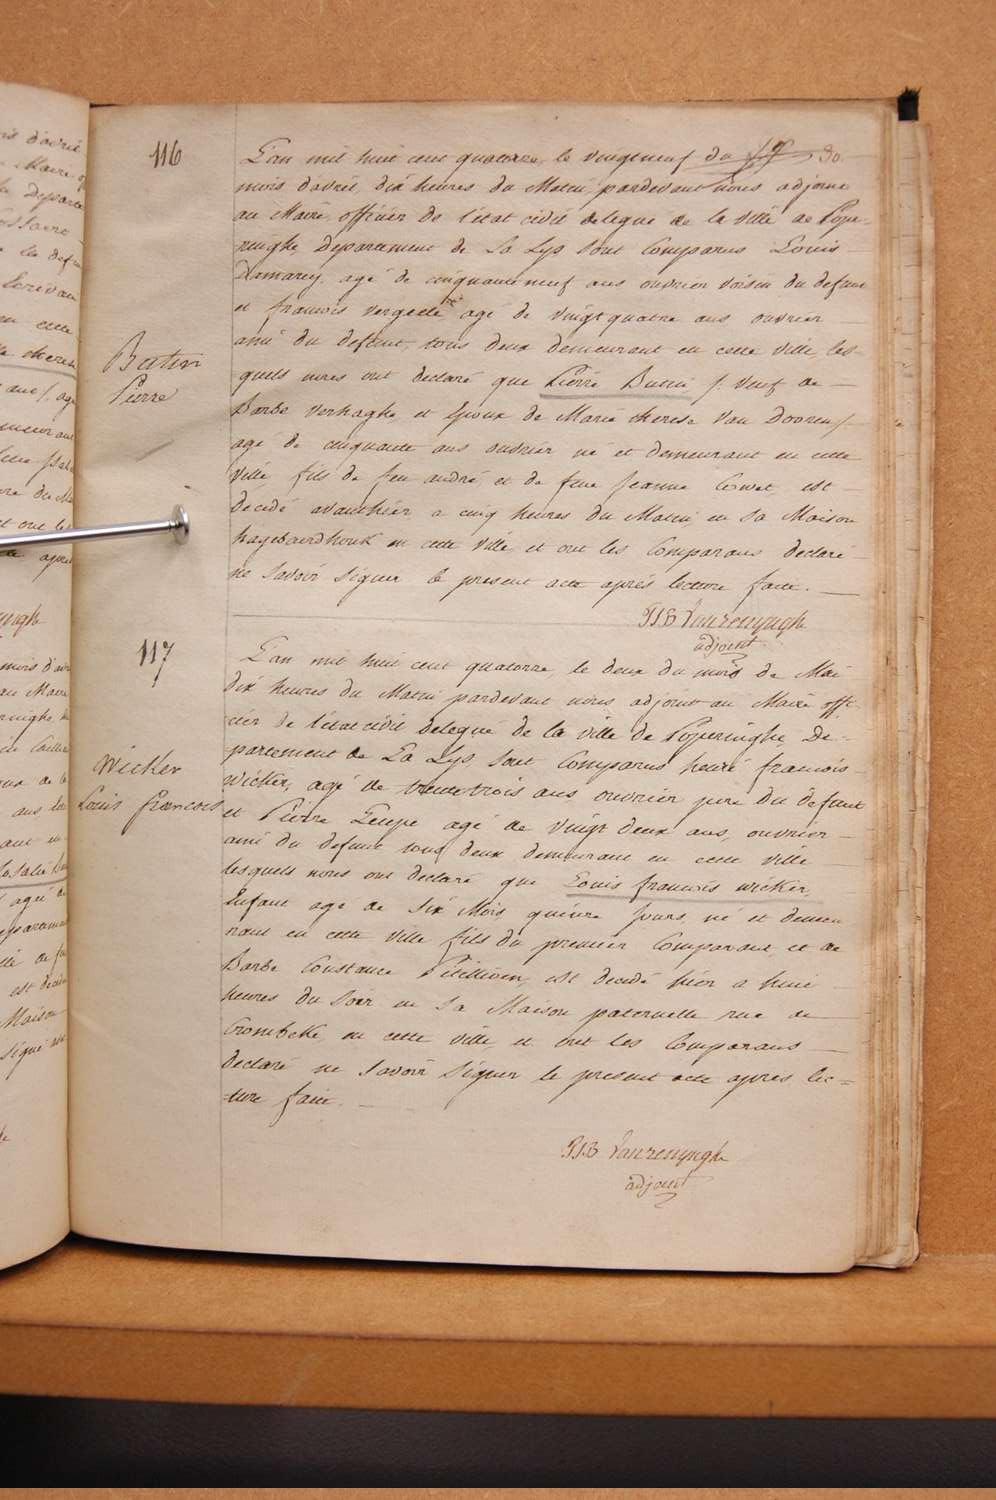 116
L'an mil huit cent quatorze, le vingtneuf du
mois d'avril, dix heures du Matin, pardevant nous adjoint
au Maire, officier de l'état civil delegué de la ville de Pope-
ringhe, Departement de La Lys sont Comparus Louis
agé de cinquanteneuf ans ouvrier voisin du defunt
et francois agé de vingtquatre ans ouvrier
ami du defunt tous deux demeurant en cette ville, les-
Batin
Pierre
quels nous ont declaré que Pierre Butin /: veuf de
Barbe verhaghe, et Epoux de Marie therese Van Dooren /:
agé de cinquante ans ouvrier né et demeurant en cette
ville fils de feu andré et de feue Jeanne est
decedé avanthier, a cinq heures du Matin en sa Maison
hagebaerdhouk en cette ville et ont les Comparans declaré
ne savoir signer le present acte après lecture faite.
PJB Vanrenynghe
adjoint
117
L'an mil huit cent quatorze, le deux du mois de Mai
dix heures du Matin pardevant nous adjoint au Maire offi-
cier de l'état civil delegué de la ville de Poperinghe, De-
partement de La Lys, sont Comparus henri francois
Wicker
Louis francois
wicker, agé de trentetrois ans ouvrier pere du defunt
et Pierre agé de vingt deux ans, ouvrier
ami du defunt tous deux demeurant en cette ville
lesquels nous ont declaré que Louis francois wicker,
Enfant agé de six Mois quinze jours, né et demeu
rant en cette ville fils du premier Comparant, et de
Barbe Constance est decedé hier a huit
heures du soir en sa Maison paternelle rue de
Crombeke, en cette ville, et ont les Comparans
declaré ne savoir signer le present acte après lec=
=ture faite.
PJB Vanrenynghe
adjoint